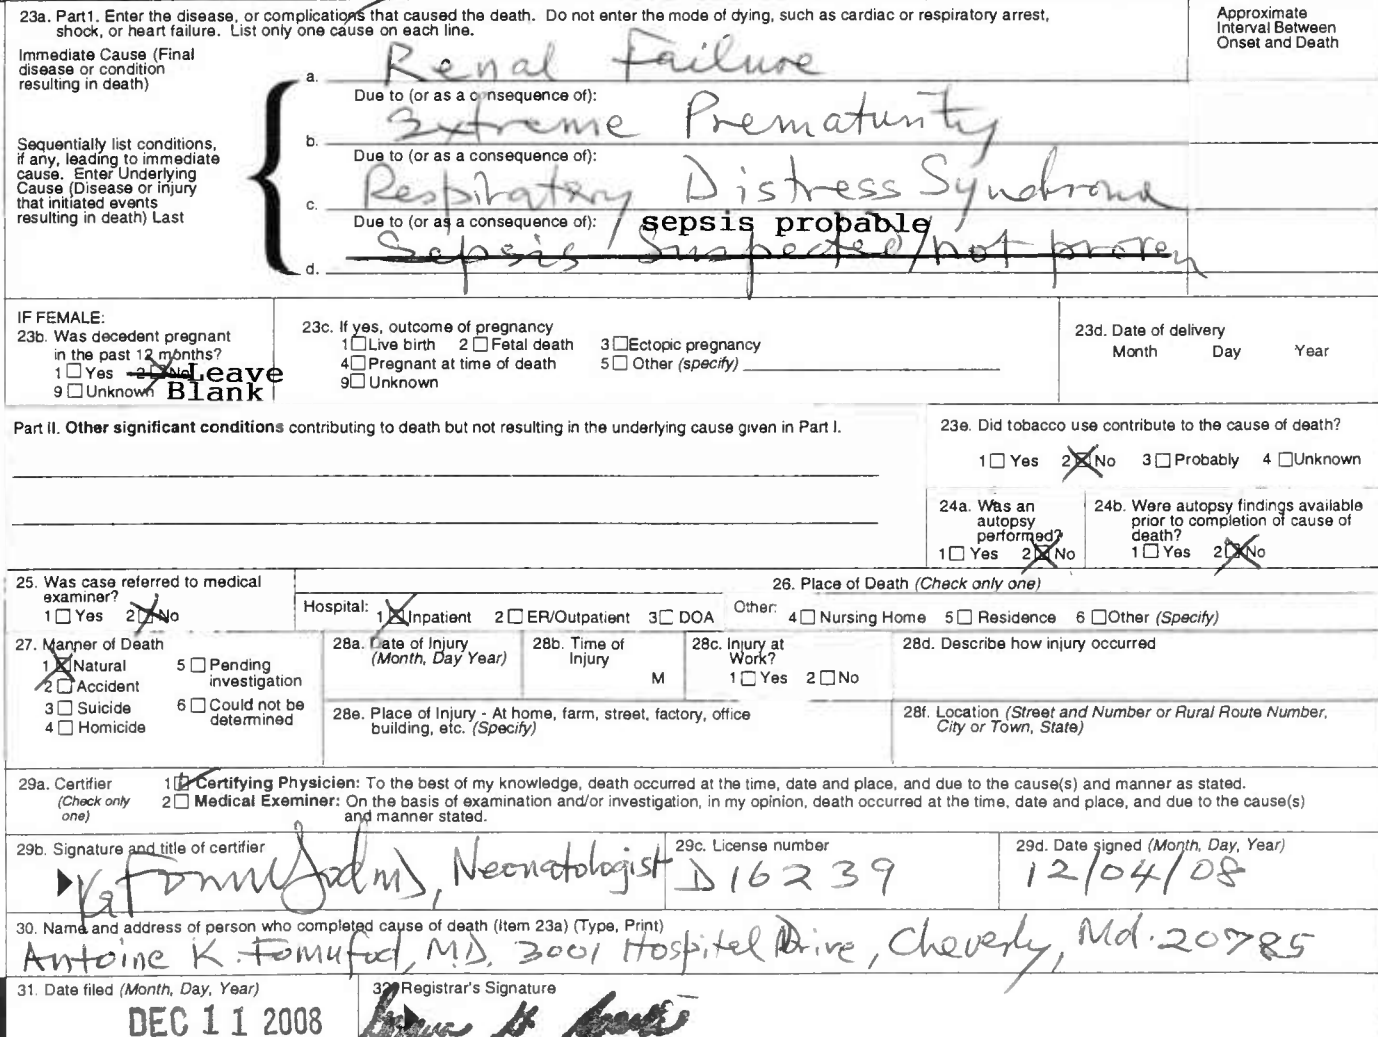 23a. Part1. Enter the disease, or complications that caused the death. Do not enter the mode of dying, such as cardiac or respiratory arrest,
shock, or heart failure. List only one cause on each line.
Approximate
Interval Between
Onset and Death
Immediate Cause (Final
disease or condition
resulting in death)
a. Renal Failure
Due to (or as a consequence of):
b. Extreme Prematurity
Sequentially list conditions,
if any, leading to immediate
cause. Enter Underlying
Cause (Disease or injury
that initiated events
resulting in death) Last
Due to (or as a consequence of):
c. Respiratory Distress Syndrome
Due to (or as a consequence of): sepsis probable
d. Sepsis Suspected/not proven
IF FEMALE:
23b. Was decedent pregnant
in the past 12 months?
1 Yes 2 No Leave
9 Unknown Blank
23c. If yes, outcome of pregnancy
1 Live birth 2 Fetal death 3 Ectopic pregnancy
4 Pregnant at time of death 5 Other (specify)
9 Unknown
23d. Date of delivery
Month Day Year
Part II. Other significant conditions contributing to death but not resulting in the underlying cause given in Part I.
23e. Did tobacco use contribute to the cause of death?
1 Yes 2 No 3 Probably 4 Unknown
24a. Was an
autopsy
performed?
1 Yes 2 No
24b. Were autopsy findings available
prior to completion of cause of
death?
1 Yes 2 No
25. Was case referred to medical
examiner?
1 Yes 2 No
26. Place of Death (Check only one)
Hospital: 1 Inpatient 2 ER/Outpatient 3 DOA Other: 4 Nursing Home 5 Residence 6 Other (Specify)
27. Manner of Death
1 Natural 5 Pending
investigation
2 Accident
3 Suicide 6 Could not be
determined
4 Homicide
28a. Date of Injury
(Month, Day Year)
28b. Time of
Injury
M
28c. Injury at
Work?
1 Yes 2 No
28d. Describe how injury occurred
28e. Place of Injury - At home, farm, street, factory, office
building, etc. (Specify)
28f. Location (Street and Number or Rural Route Number,
City or Town, State)
29a. Certifier
(Check only
one)
1 Certifying Physician: To the best of my knowledge, death occurred at the time, date and place, and due to the cause(s) and manner as stated.
2 Medical Exeminer: On the basis of examination and/or investigation, in my opinion, death occurred at the time, date and place, and due to the cause(s)
and manner stated.
29b. Signature and title of certifier
Fomufod MD, Neonatologist
29c. License number
D16239
29d. Date signed (Month, Day, Year)
12/04/08
30. Name and address of person who completed cause of death (Item 23a) (Type, Print)
Antoine K. Fomufod, M.D. 3001 Hospital Drive, Cheverly, Md. 20785
31. Date filed (Month, Day, Year)
DEC 11 2008
32. Registrar's Signature